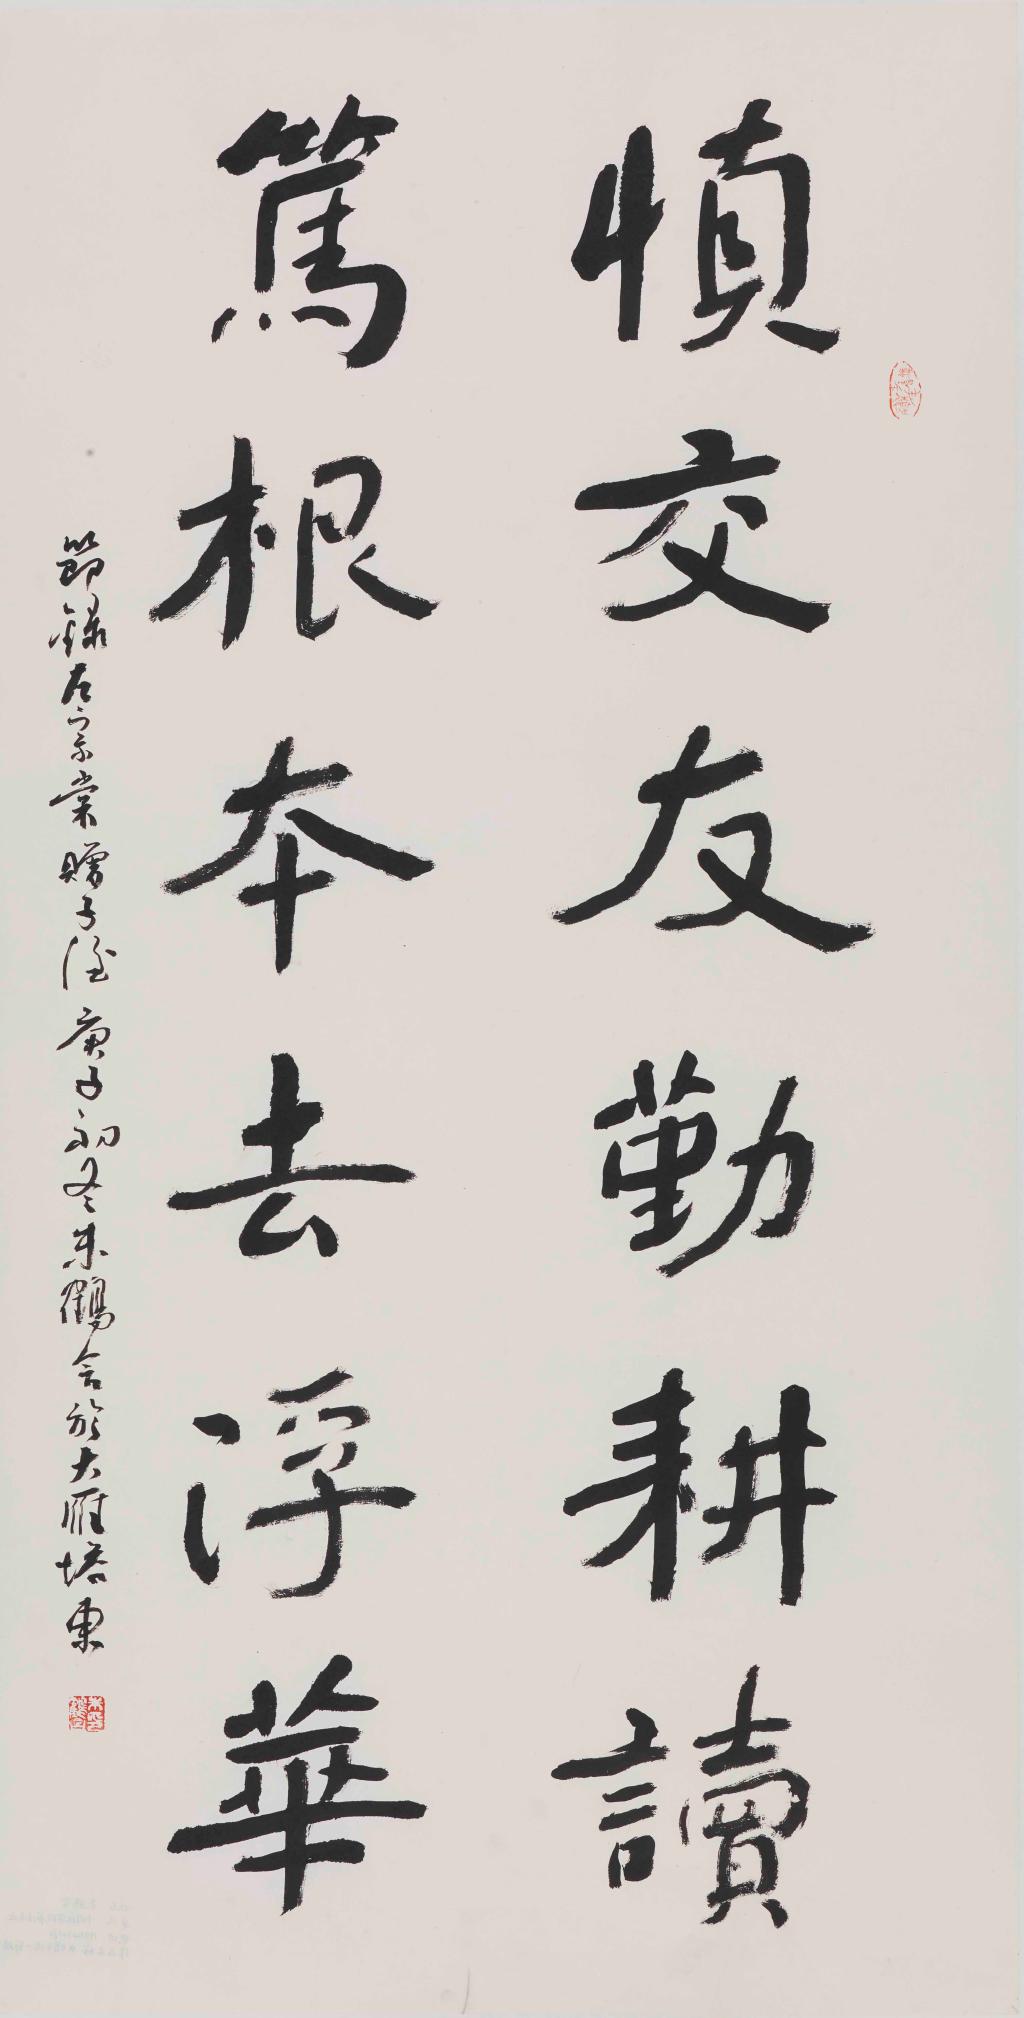 慎交友勤耕讀
篤根本去浮華
節錄左宗棠贈子侄庚子初冬朱鶴言於大雁塔東